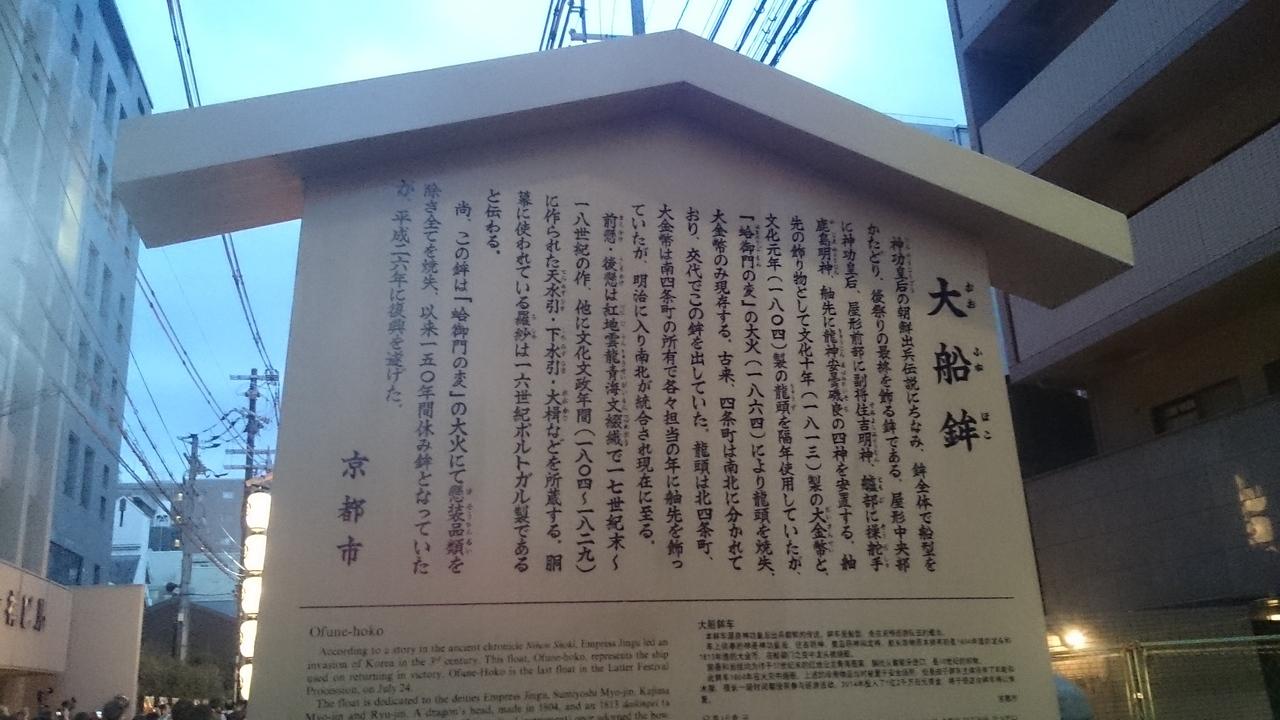 大船鉾
おお ふね ほこ
神功皇后の朝鮮出兵伝説にちなみ、鉾全体で船型を
かたどり、後祭りの最終を飾る鉾である。屋形中央部
に神功皇后、屋形前部に副将住吉明神、艫部に操舵手
鹿島明神、舳先に龍神安曇磯良の四神を安置する。舳
先の飾り物として文化十年(一八一三)製の大金幣と、
文化元年(一八〇四)製の龍頭を隔年使用していたが、
「蛤御門の変」の大火(一八六四)により龍頭を焼失、
大金幣のみ現存する。古来、四条町は南北に分かれて
おり、交代でこの鉾を出していた。龍頭は北四条町、
大金幣は南四条町の所有で各々担当の年に舳先を飾っ
ていたが、明治に入り南北が統合され現在に至る。
前懸・後懸は紅地雲龍青海文綴織で一七世紀末~
一八世紀の作、他に文化文政年間(一八〇四~一八二九)
に作られた天水引・下水引・大楫などを所蔵する。胴
幕に使われている羅紗は一六世紀ポルトガル製である
と伝わる。
尚、この鉾は「蛤御門の変」の大火にて懸装品類を
除き全てを焼失、以来一五〇年間休み鉾となっていた
が、平成二六年に復興を遂げた。
京都市
Ofune-hoko
According to a story in the ancient chronicle Nihon Shoki, Empress Jingu led an
invasion of Korea in the 3rd century. This float, Ofune-hoko, represents the ship
used on returning in victory. Ofune-Hoko is the last float in the Latter Festival
Procession, on July 24.
The float is dedicated to the deities Empress Jingu, Sumiyoshi Myo-jin, Kajima
Myo-jin and Ryu-jin. A dragon's head, made in 1804, and an 1813
once adorned the bow
大船鉾车